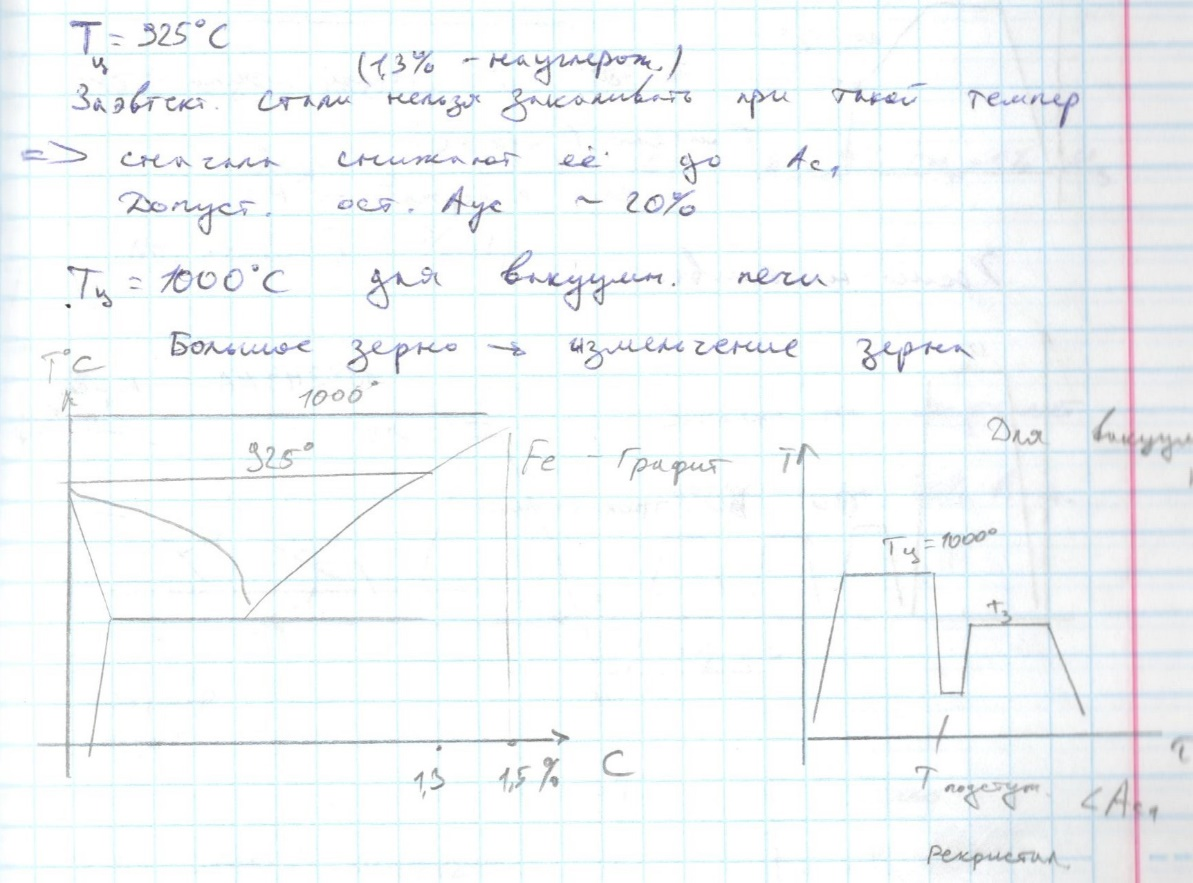 Tц = 925°C
(1,3% - науглерож.)
Заэвтект. стали нельзя закаливать при такой темпер
=> сначала снижают её до Ac₁
Допуст. ост. Аус ~ 20%
Tц = 1000°C для вакуумн. печи
Большое зерно → измельчение зерна
T°C
1000°
925°
Fe - Графит
1,3
1,5%
C
Для вакуум
T
Tц = 1000°
t₃
T подстуж. < Ac₁
τ
Рекристал